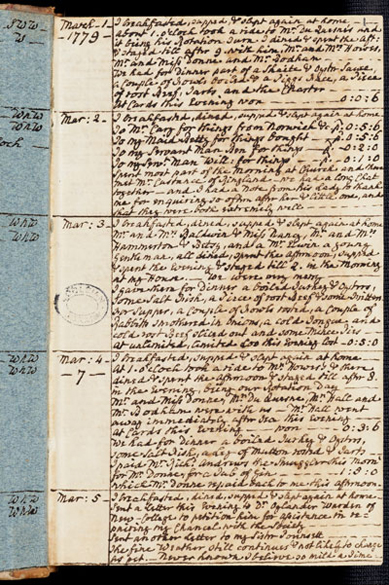 SWW
W
March. 1 - I breakfasted, supped & slept again at home -
1779 - About 1. o'clock took a ride to Mr. Du Quesne's and
it being his Rotation Turn I dined & spent the aft:
& stayed till after 9 with him, Mr. and Mrs. Howes
Mr. and Miss Donne and Mr. Bodham
We had for Dinner part of a Skaite & Oyster Sauce,
a Couple of Fowls a Piece
of roast Beef, Tarts, and the Charter
At Cards this Evening won - 0:0:6
WbW
WbW
Mar: 2 - I breakfasted, dined, supped & slept again at home
To Mr. Cary for things from Norwich &c p: 0:5:6
To my Maid Betty for things bought p: 0:5:6
To my Servant Man Ben for things - p: 0:2:0
To my Serv. Man Will: for things - p: 0:1:0
Spent most part of the Morning at Church and there
met Mr. and we had a long Chat
together - and I had a Note from his Lady to thank
me for enquiring so often after her & little one, and
that they were both extremely well -
WbW
WbW
Mar: 3 - I breakfasted, dined, supped & slept again at home
Mr. and Mrs. Baldwin & Miss Nancy, Mr. and Mrs.
Hammerton & Betsy, and a Mr. Lewin a young
Gentleman, all dined, spent the afternoon, supped
& spent the Evening & stayed till 2. in the Morning
at my House - We were very merry
I gave them for Dinner a boiled Turkey & Oysters,
some Salt Fish, a Piece of roast Beef & some Mutton
for Supper, a Couple of Fowls rosted, a Couple of
Rabbitts smothered in Onions, a cold Tongue, and
cold rost Beef sliced out and some Mince Pies -
At unlimited, limited Loo this Evening lost - 0:5:0
WbW
WbW
Mar: 4 - I breakfasted, supped & slept again at home
7 - At 1. o'clock took a ride to Mr. Howes's & there
dined & spent the Afternoon & stayed till after 8.
in the evening, being our Rotation Day
Mr. and Miss Donne, Mr. Du Quesne, Mr. Hall and
Mr. Bodham were with us - Mr. Hall went
away immediately after Tea this Evening
At Cards this Evening - won - 0:3:6
We had for Dinner a boiled Turkey & Oysters,
some Salt Fish, a Leg of Mutton rosted & Tarts
I paid Mr. Rich. Andrews the Smuggler this Morn:
for Mr. Donne, for a Tub of Gin - 1:3:0
which Mr. Donne repaid back to me this afternoon
WbW
WbW
Mar: 5 - I breakfasted, dined, supped & slept again at home -
Sent a Letter this Evening to Dr. Oglander Warden of
New-College to petition him for assistance in re =
pairing my Chancel with the Society
Sent another Letter to my Sister Pounsett
The fine Weather still continues & not likely to change
as yet. Never known I believe so mild a Time -